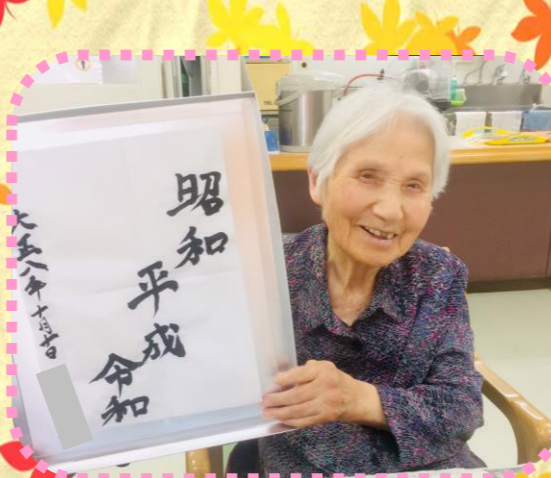 昭和
平成
令和
大正八年十月